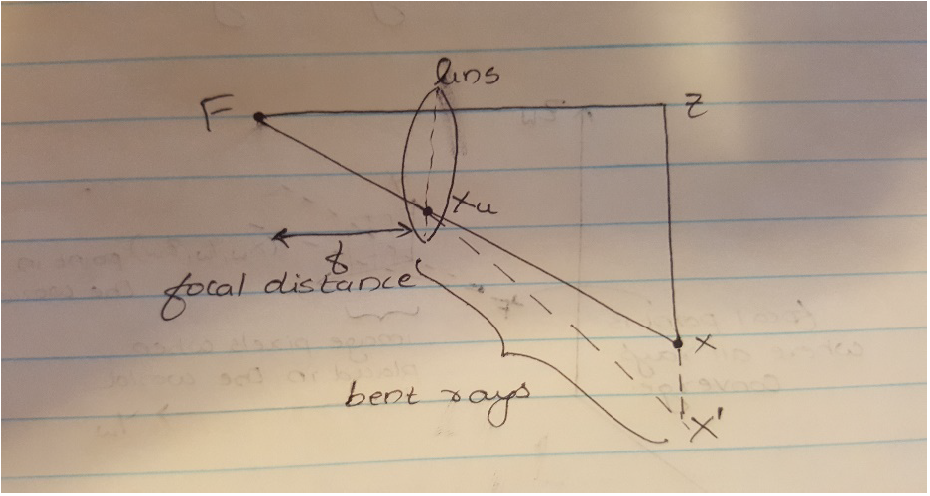 lens
F
Z
Xu
f
focal distance
X
bent rays
X'